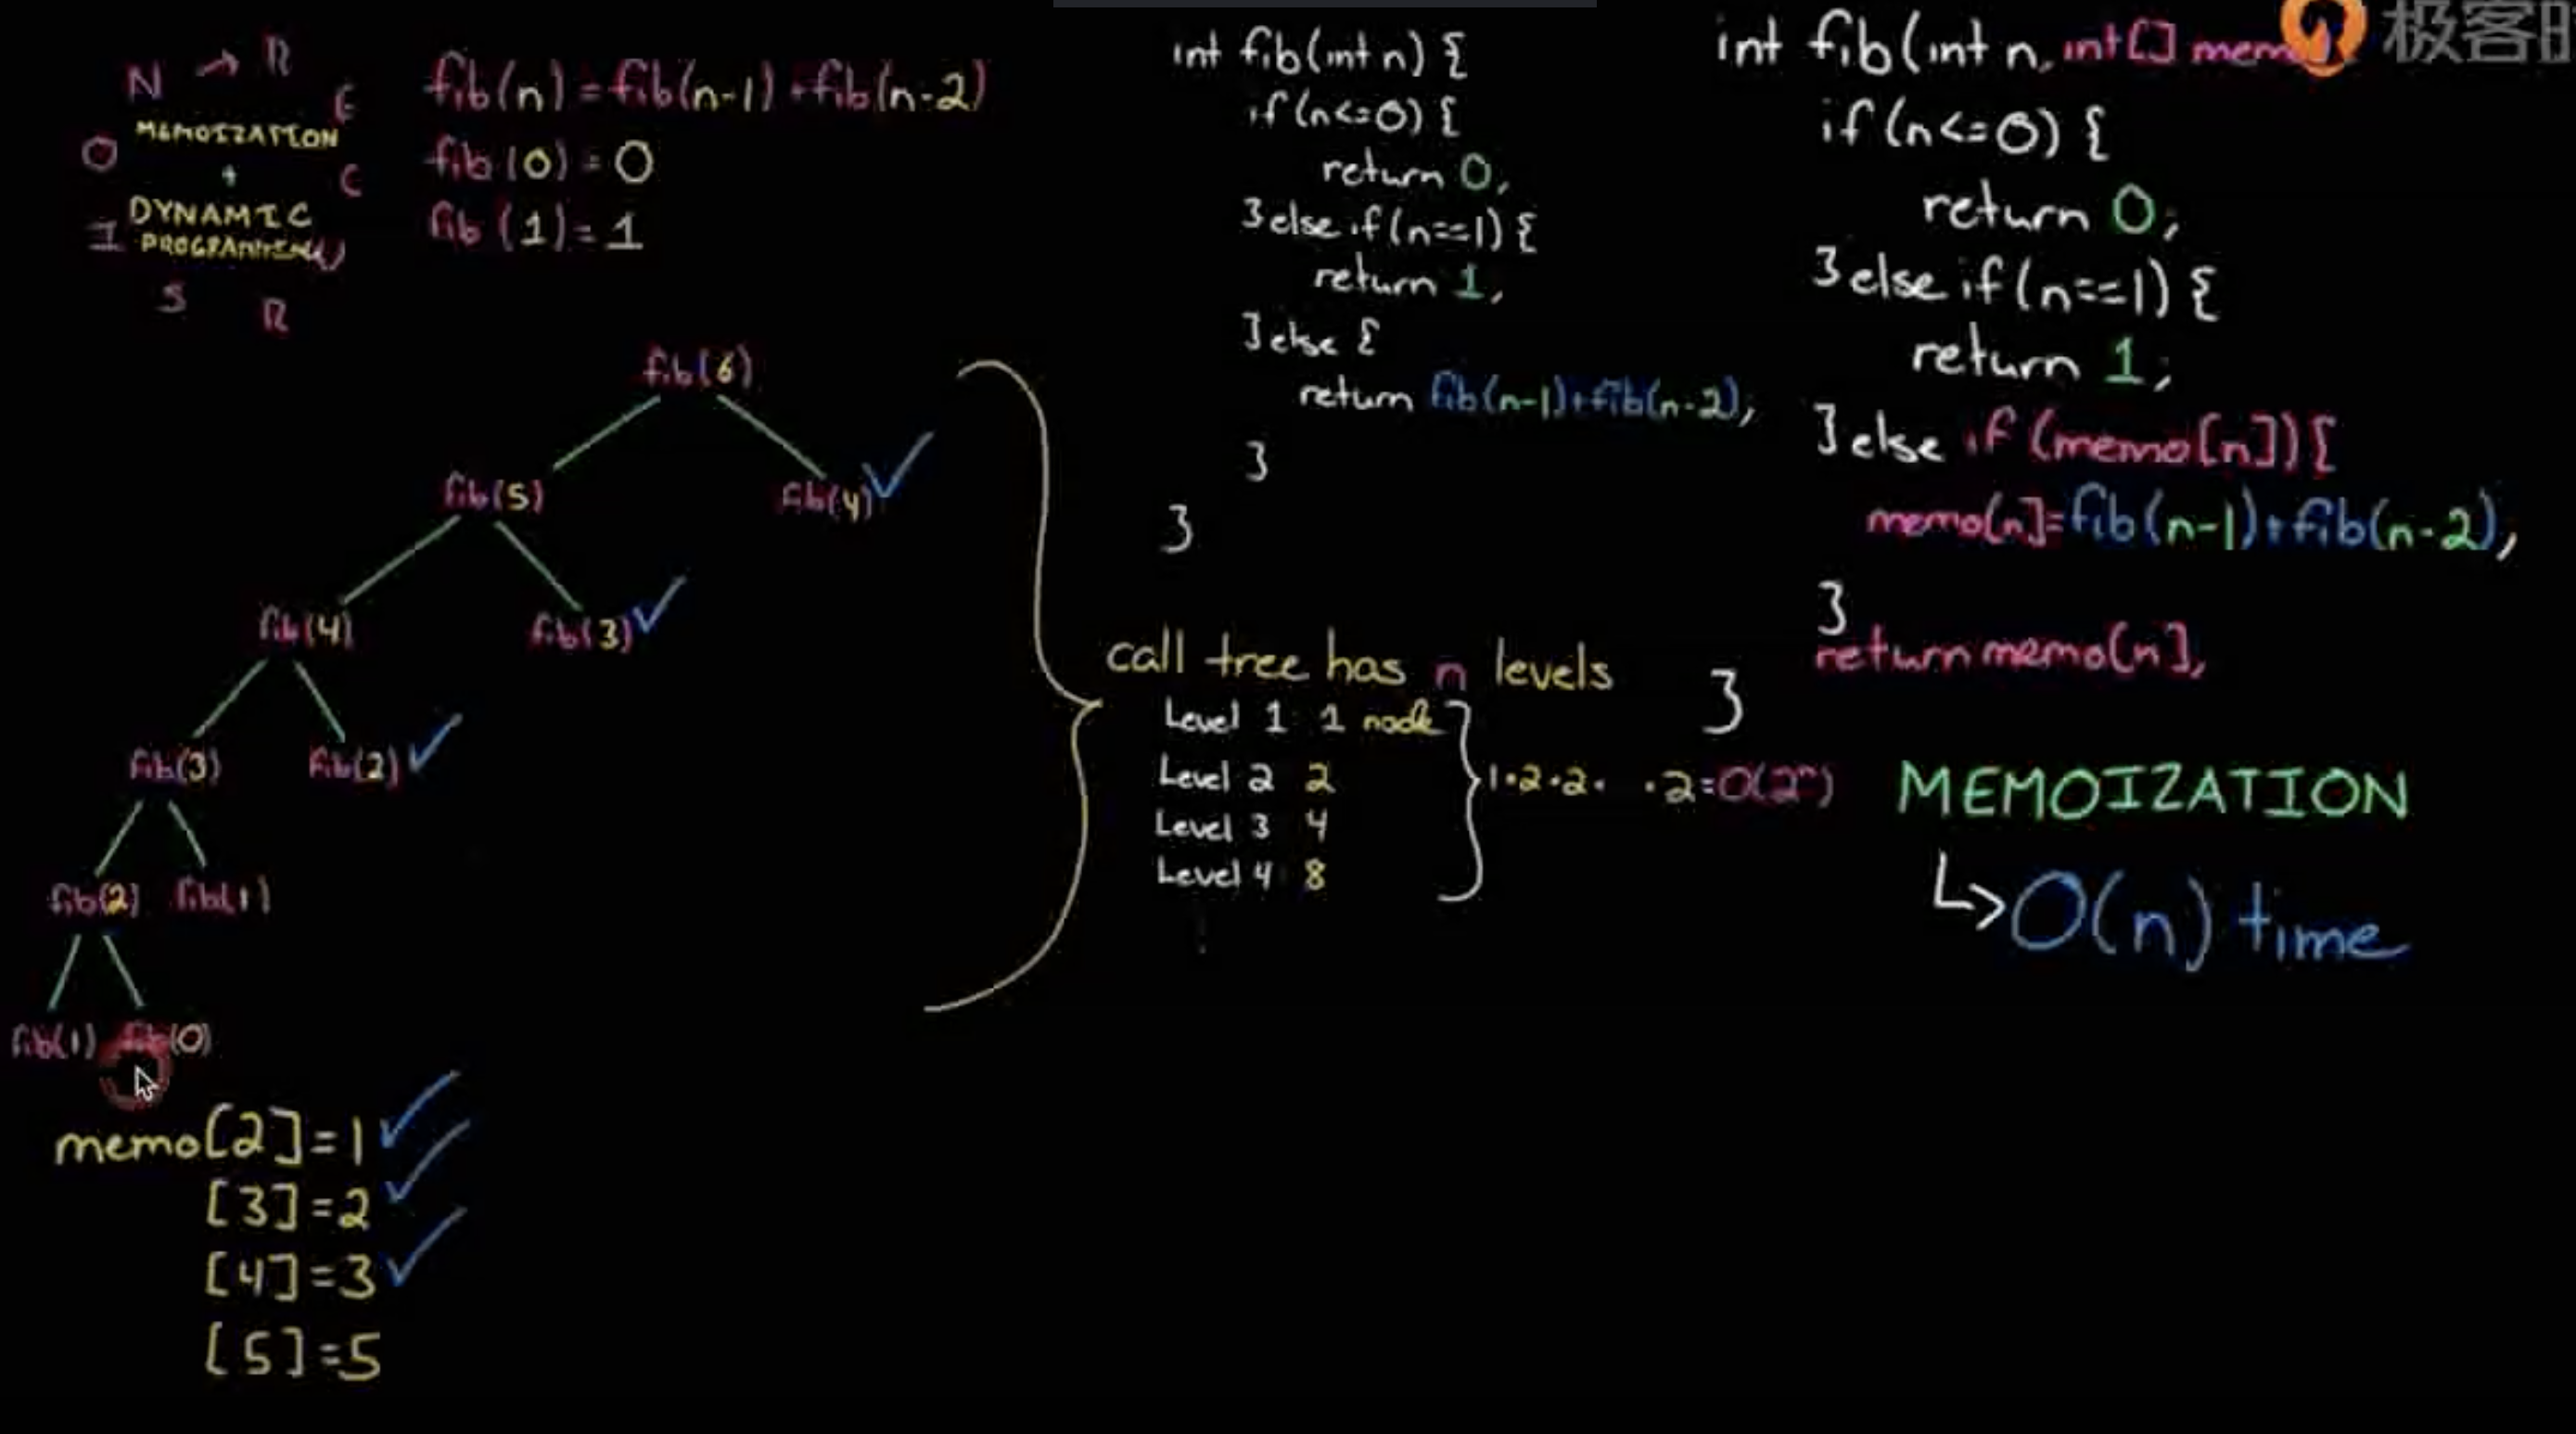 N → R
E
MEMOIZATION
O
+
C
DYNAMIC
I
PROGRAMMING
S
R
fib(n) = fib(n-1) + fib(n-2)
fib(0) = 0
fib(1) = 1
fib(6)
fib(5) fib(4)
fib(4) fib(3)
fib(3) fib(2)
fib(2) fib(1)
fib(1) fib(0)
memo[2]=1
[3]=2
[4]=3
[5]=5
int fib(int n) {
if(n<=0) {
return 0;
}else if(n==1) {
return 1;
}else {
return fib(n-1)+fib(n-2);
}
}
call tree has n levels
Level 1 1 node
Level 2 2
Level 3 4
Level 4 8
1·2·2· ·2=O(2ⁿ)
int fib(int n, int[] mem
if(n<=0) {
return 0;
}else if(n==1) {
return 1;
}else if(memo[n]){
memo[n]=fib(n-1)+fib(n-2);
}
return memo[n];
}
MEMOIZATION
↳O(n) time
极客